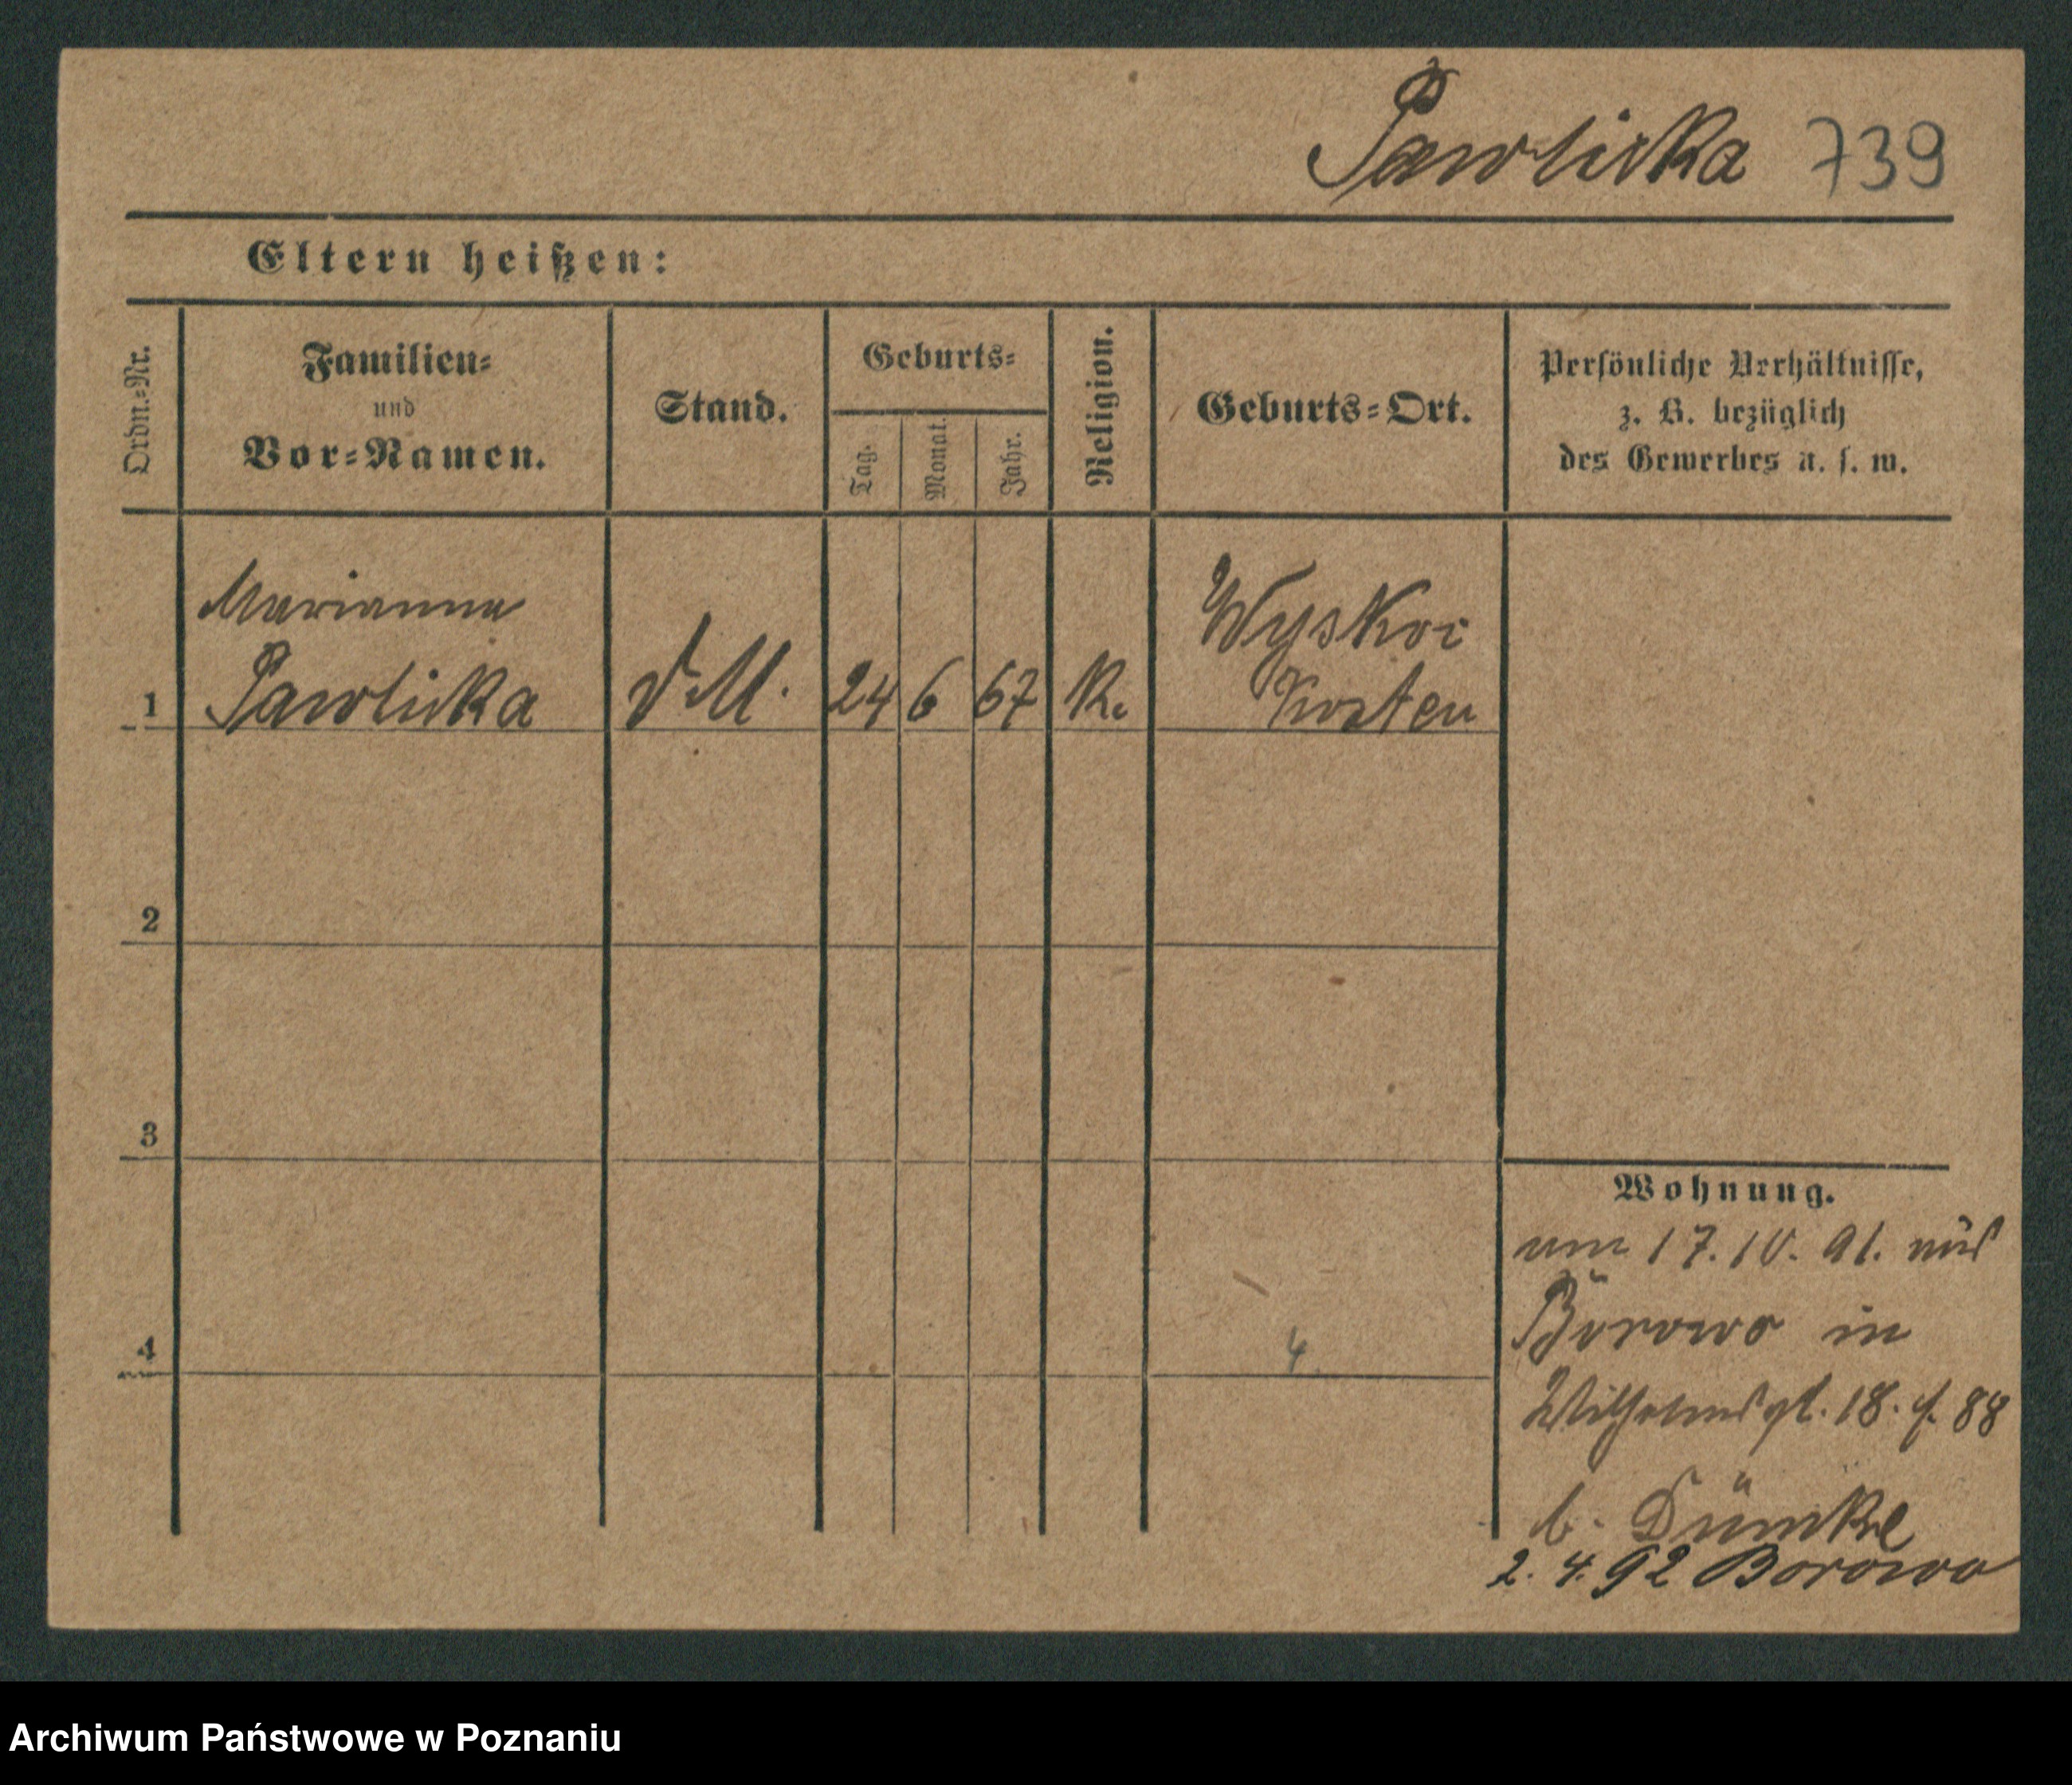 Pawlicka 739
Eltern heißen:
Ordn.-Nr.
Familien-
und
Vor-Namen.
Stand.
Geburts-
Tag.
Monat.
Jahr.
Religion.
Geburts-Ort.
Persönliche Verhältnisse,
z. B. bezüglich
des Gewerbes u. s. w.
Marianna
Pawlicka
1
d. M.
24 6 67 K.
Wyskoc
Kosten
2
3
4
4
Wohnung.
am 17. 10. 91. aus
Borowo in
Wilhelmspl. 18. f. 88
b. Dümke
2. 4. 92 Borowo
Archiwum Państwowe w Poznaniu